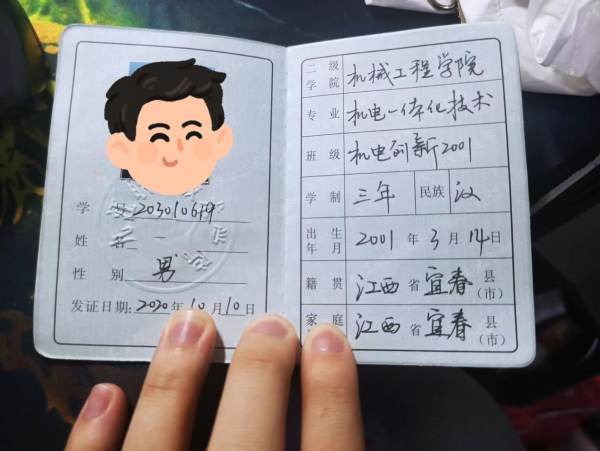 学号 203010619
姓名
性别 男
发证日期:2020年10月10日
二级学院 机械工程学院
专业 机电一体化技术
班级 机电创新2001
学制 三年 民族 汉
出生年月 2001年3月14日
籍贯 江西省宜春县(市)
家庭 江西省宜春县(市)